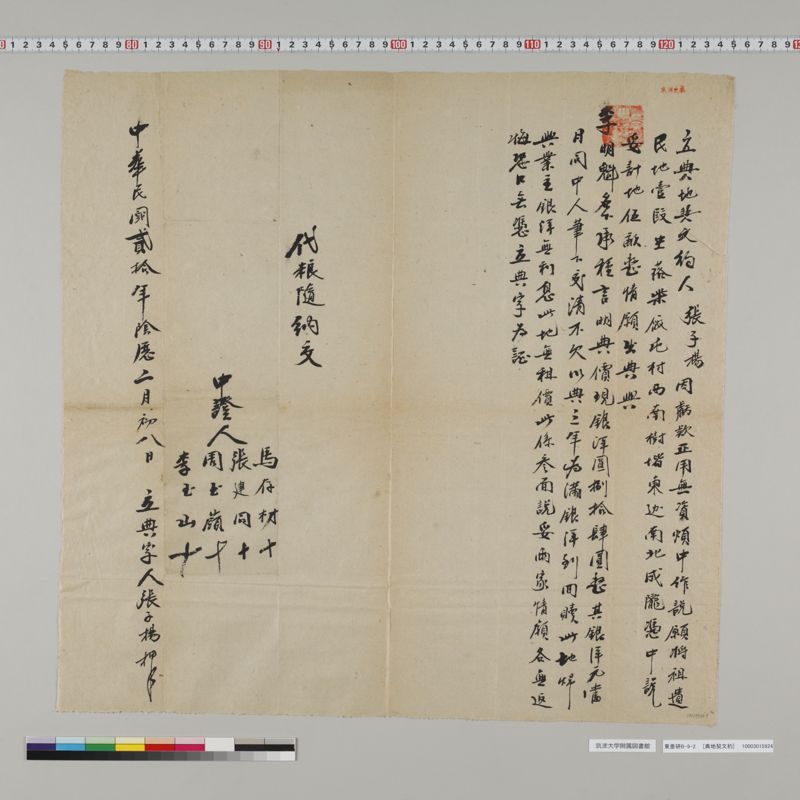 立典地契文約人 張子楊 因虧款正用無資煩中作說願將祖遺
民地壹段坐落梁假屯村西南樹塔東边南北成隴憑中說
妥計地伍畝整情願出典與
李明魁名下承種言明典價現銀洋圓捌拾肆圓整其銀洋元當
日同中人筆下交清不欠以典三年為滿銀洋到回贖此地歸
與業主銀洋無利息此地無租價此係叁面說妥两家情願各無返
悔恐口無憑立典字為証
代粮隨納交
中證人
馬存材十
張建同十
周玉嶺十
李玉山十
中華民國貳拾年陰歷二月初八日 立典字人張子楊押
筑波大学附属図書館
東亜研B-9-2 [典地契文約] 10003015924
80
90
100
110
120